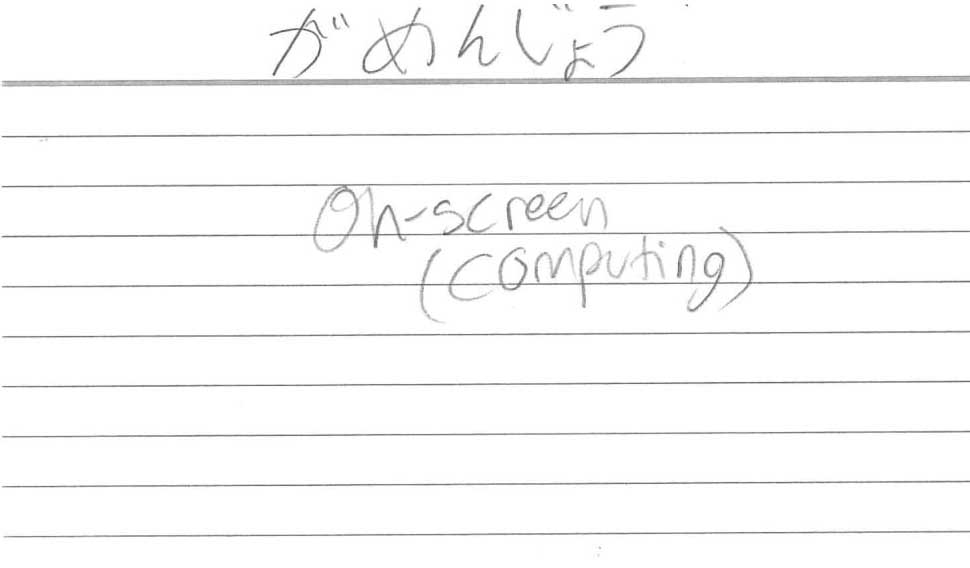 がめんじょう
On-screen
(computing)